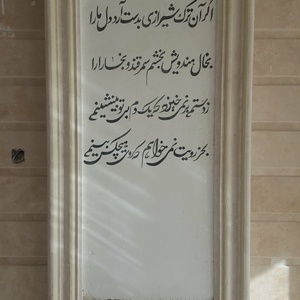 اگر آن ترک شیرازی بدست آرد دل ما را
بخال هندویش بخشم سمرقند و بخارا را
ز دستم بر نمی‌خیزد که یک دم بی تو بنشینم
بجز رویت نمی‌خواهم که روی هیچکس بینم